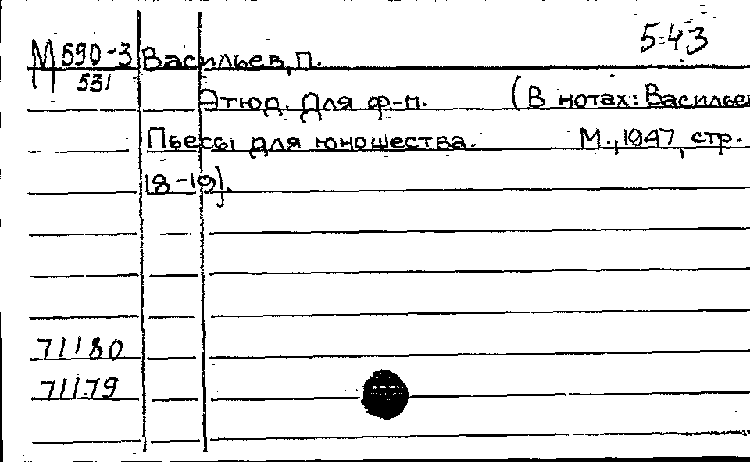 5-43
М 590-3 Васильев, П.
531
Этюд. Для ф-п. (В нотах: Васильев
Пьесы для юношества. М., 1947, стр.
18-19).
71180
71179